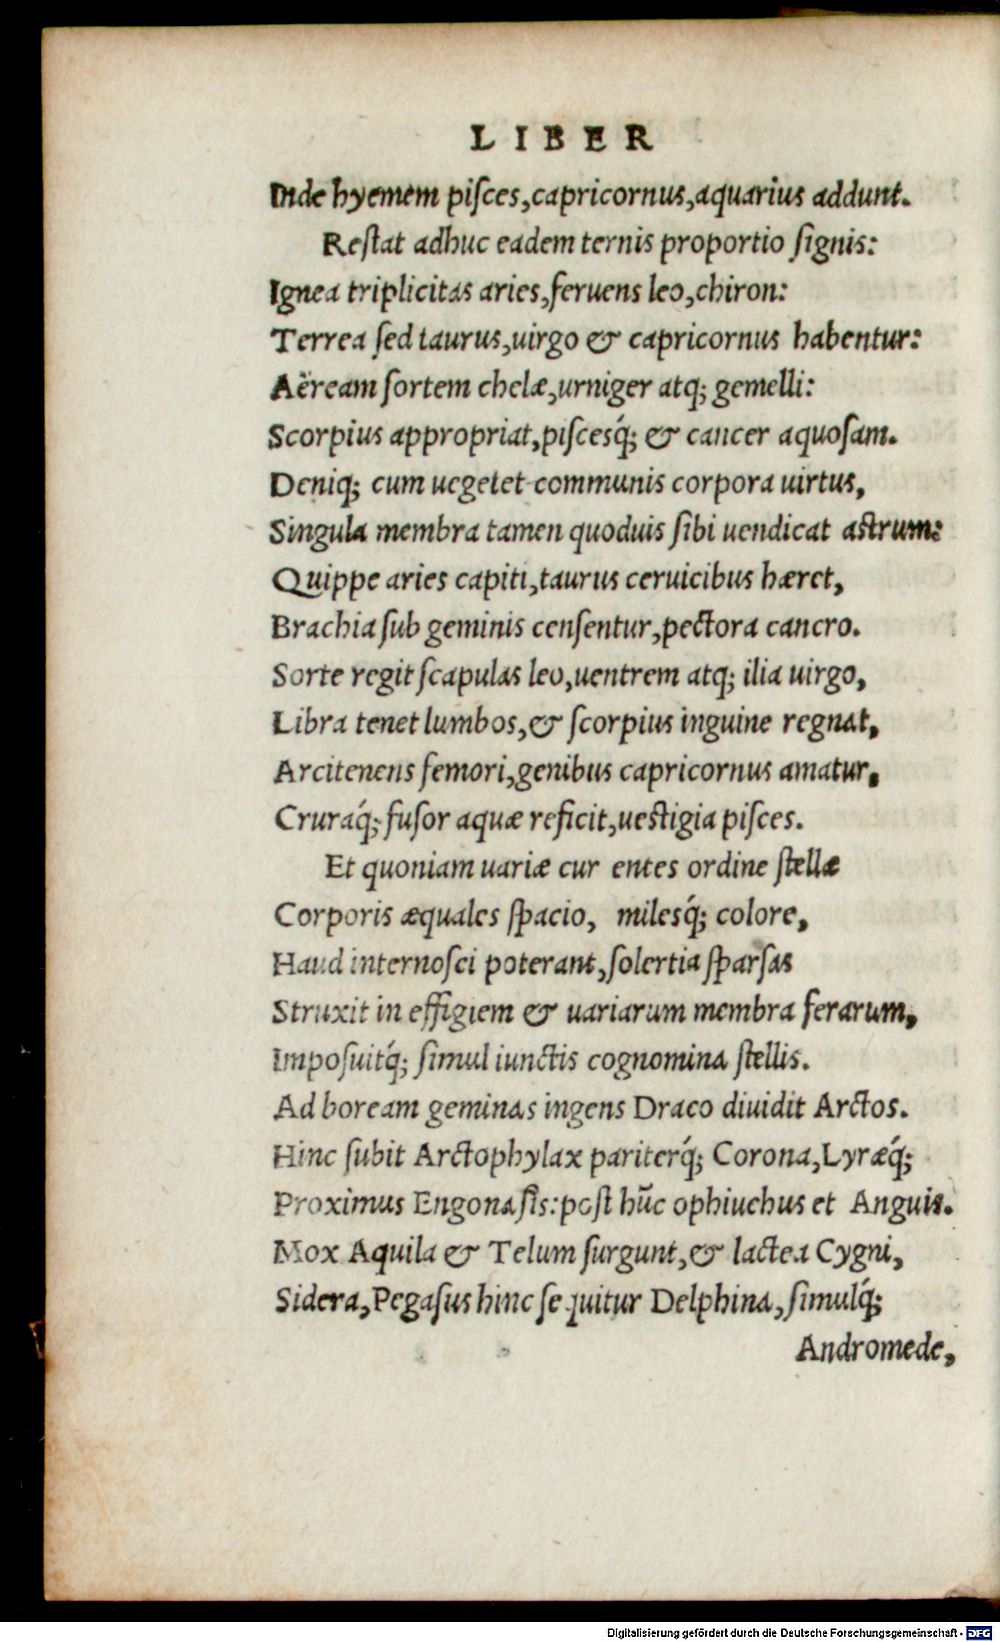 LIBER
Inde hyemem pisces, capricornus, aquarius addunt.
Restat adhuc eadem ternis proportio signis:
Ignea triplicitas aries, feruens leo, chiron:
Terrea sed taurus, uirgo & capricornus habentur:
Aëream sortem chelæ, urniger atq; gemelli:
Scorpius appropriat, piscesq́; & cancer aquosam.
Deniq; cum uegetet communis corpora uirtus,
Singula membra tamen quoduis sibi uendicat astrum:
Quippe aries capiti, taurus ceruicibus hæret,
Brachia sub geminis censentur, pectora cancro.
Sorte regit scapulas leo, uentrem atq; ilia uirgo,
Libra tenet lumbos, & scorpius inguine regnat,
Arcitenens femori, genibus capricornus amatur,
Cruraq́; fusor aquæ reficit, uestigia pisces.
Et quoniam uariæ cur entes ordine stellæ
Corporis æquales spacio, milesq́; colore,
Haud internosci poterant, solertia sparsas
Struxit in effigiem & uariarum membra ferarum,
Imposuitq́; simul iunctis cognomina stellis.
Ad boream geminas ingens Draco diuidit Arctos.
Hinc subit Arctophylax pariterq́; Corona, Lyræq́;
Proximus Engonasis: post hūc ophiuchus et Anguis.
Mox Aquila & Telum surgunt, & lactea Cygni,
Sidera, Pegasus hinc sequitur Delphina, simulq́;
Andromede,
Digitalisierung gefördert durch die Deutsche Forschungsgemeinschaft - DFG